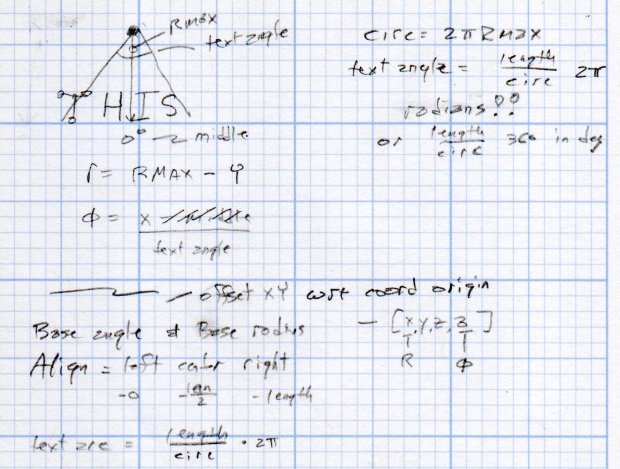 RMax
text angle
THIS
0° middle
r = RMAX - Y
φ = x
text angle
circ = 2π RMax
text angle = length / circ 2π
radians!!
or length / circ 360 in deg
offset XY wrt coord origin
Base angle & Base radius
- [x, y, z, 3]
R φ
Align = left center right
-0 -len/2 -length
text arc = length / circ · 2π